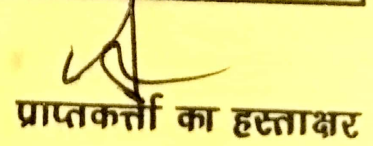 प्राप्तकर्त्ता का हस्ताक्षर